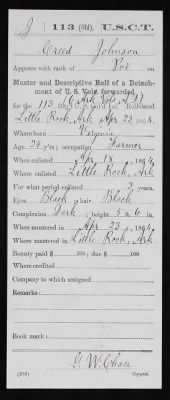 J 113 (Old). U.S.C.T.
Creed Johnson
Appears with rank of Pvt on
Muster and Descriptive Roll of a Detach-
ment of U. S. Vols. forwarded
for the 113 Reg't U. S. Col'd Inf. Roll dated
Little Rock, Ark Apr 23, 1864.
Where born Virginia
Age 24 y'rs; occupation Farmer
When enlisted Apr 18, 1864.
Where enlisted Little Rock, Ark
For what period enlisted 3 years.
Eyes Black; hair Black
Complexion Dark; height 5 ft. 6 in.
When mustered in Apr 23, 1864.
Where mustered in Little Rock, Ark
Bounty paid $ 100; due $ 100
Where credited
Company to which assigned
Remarks:
Book mark:
G. W. Chace
Copyist.